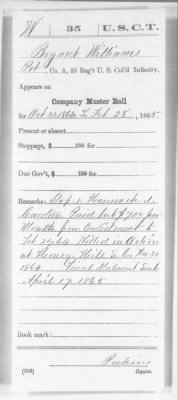 W | 35 | U.S.C.T.
Bryant Williams
Pvt, Co. A, 35 Reg't U.S. Col'd Infantry.
Appears on
Company Muster Roll
for Oct 31 1864 To Feb 28, 1865.
Present or absent
Stoppage, $ 100 for
Due Gov't, $ 100 for
Remarks: Stop 1 Haversack 1
Canteen Paid but $7.00 per
Month from Enlistment to
Feb 29/64 Killed in Action
at Honey Hill S. C. Nov 30
1864 Final Statement Sent
April 17 1865
Book mark:
Perkins
(358) Copyist.